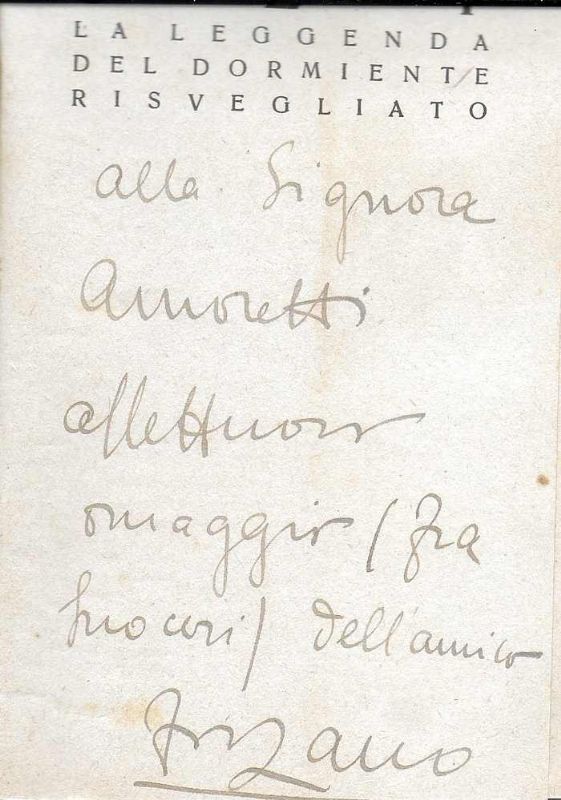 LA LEGGENDA
DEL DORMIENTE
RISVEGLIATO
alla Signora
Amoretti
affettuoso
omaggio (fra
suoceri) dell'amico